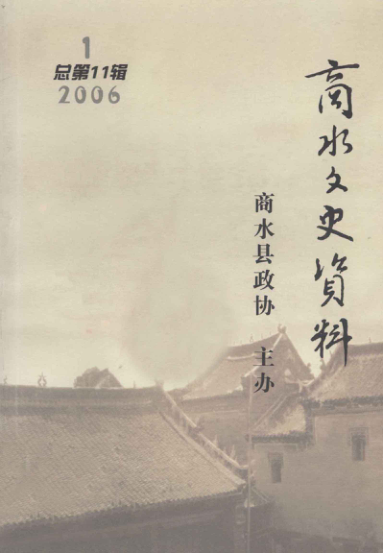 1
总第11辑
2006
商水文史资料
商水县政协 主办